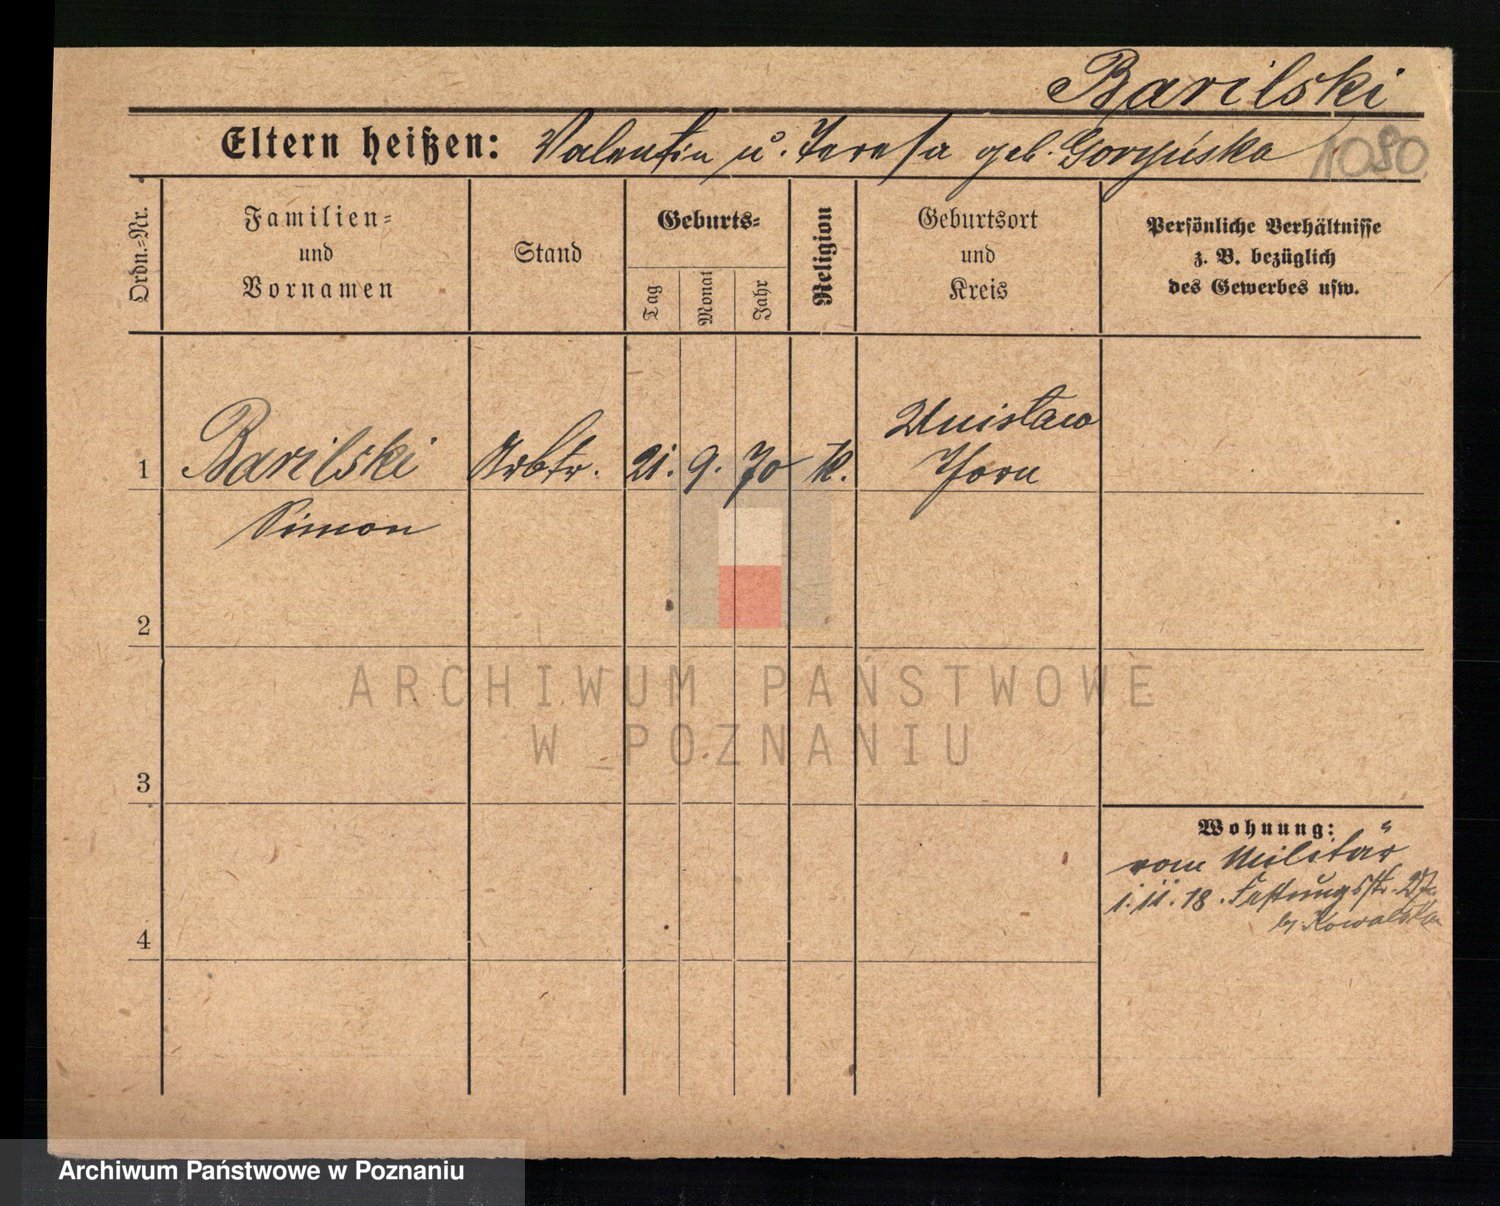 Barilski
Eltern heißen: Valentin u. Teresa geb.
1080
Ordn.-Nr.
Familien-
und
Vornamen
Stand
Geburts-
Tag
Monat
Jahr
Religion
Geburtsort
und
Kreis
Persönliche Verhältnisse
z. B. bezüglich
des Gewerbes usw.
1
Barilski
Simon
Arbtr.
21.
9.
70
K.
Unislaw
Thorn
2
3
4
Wohnung:
vom Militär
1.11.18. Festungsstr. 27.
ARCHIWUM PAŃSTWOWE
W POZNANIU
Archiwum Państwowe w Poznaniu